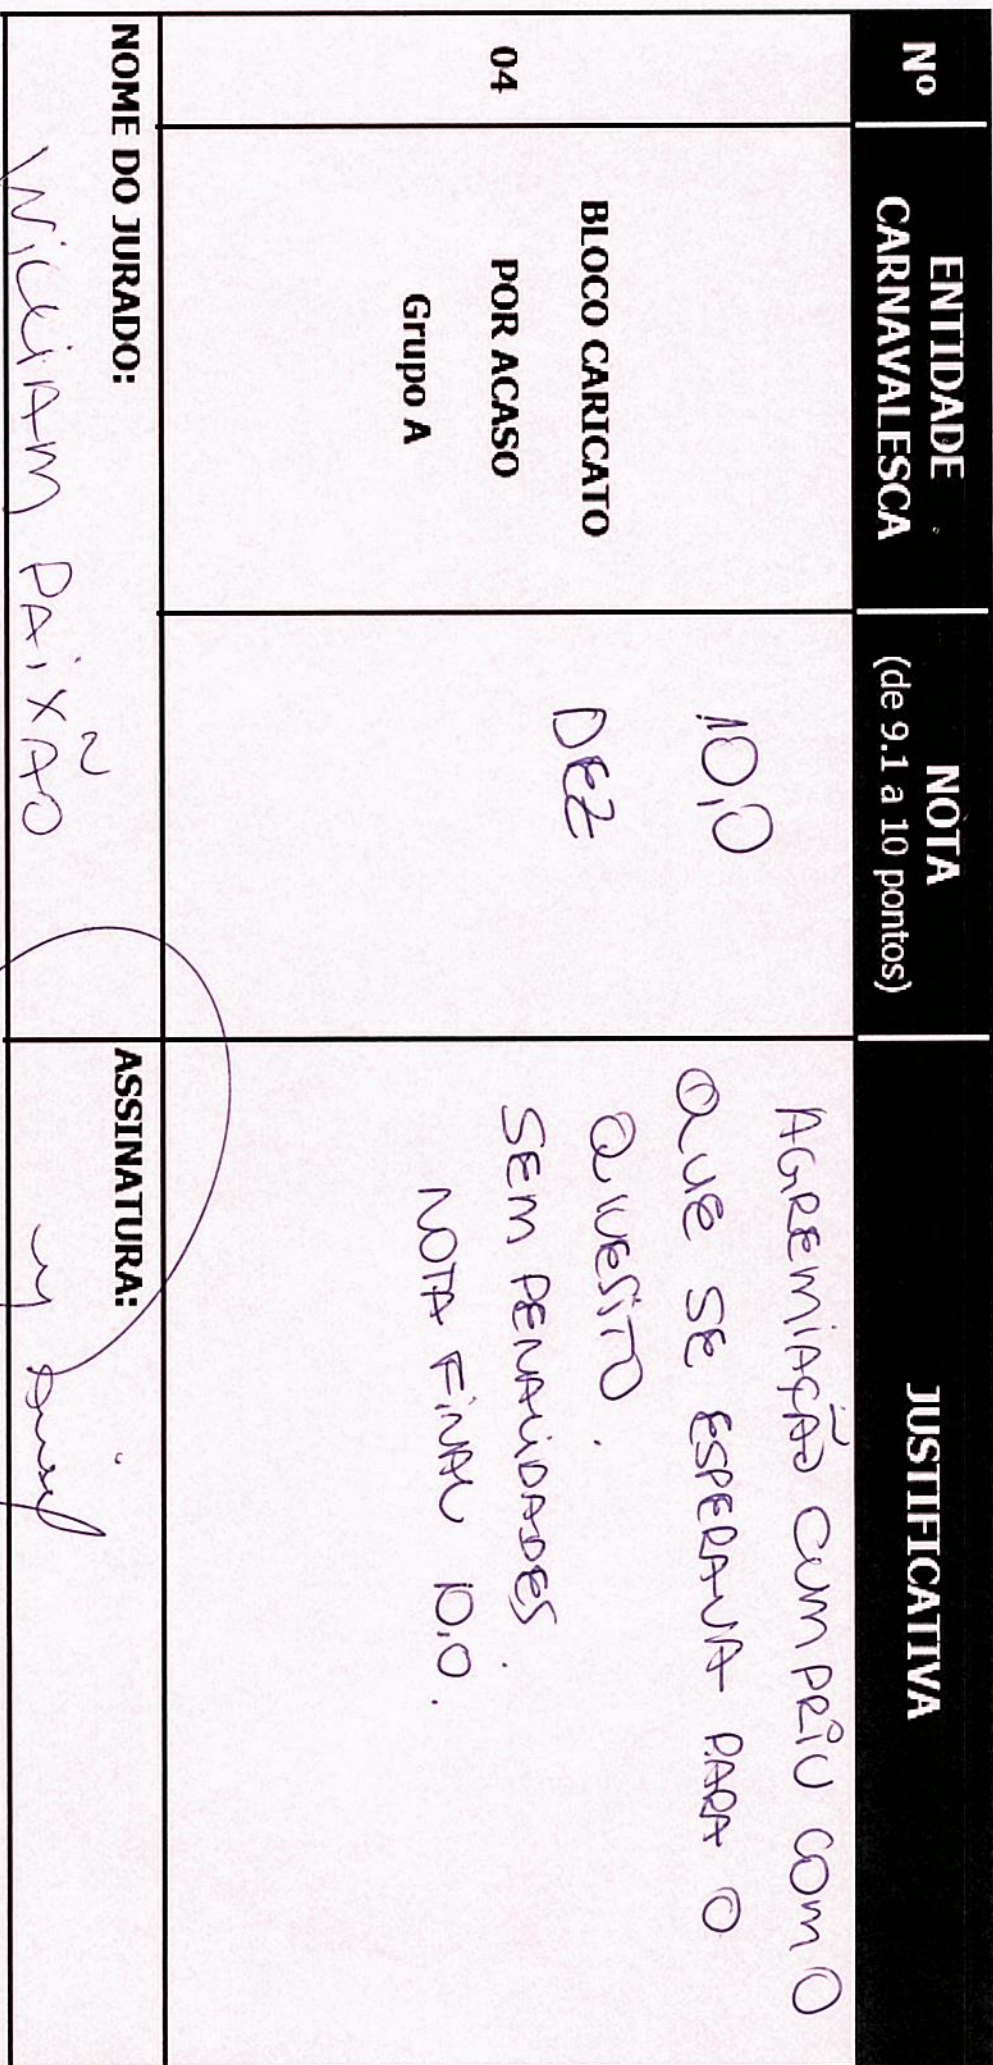 Nº
ENTIDADE
CARNAVALESCA
NOTA
(de 9.1 a 10 pontos)
JUSTIFICATIVA
04
BLOCO CARICATO
POR ACASO
Grupo A
10,0
DEZ
AGREMIAÇÃO CUMPRIU COM O
QUE SE ESPERAVA PARA O
QUESITO.
SEM PENALIDADES.
NOTA FINAL 10,0.
NOME DO JURADO:
WILLIAM PAIXÃO
ASSINATURA: